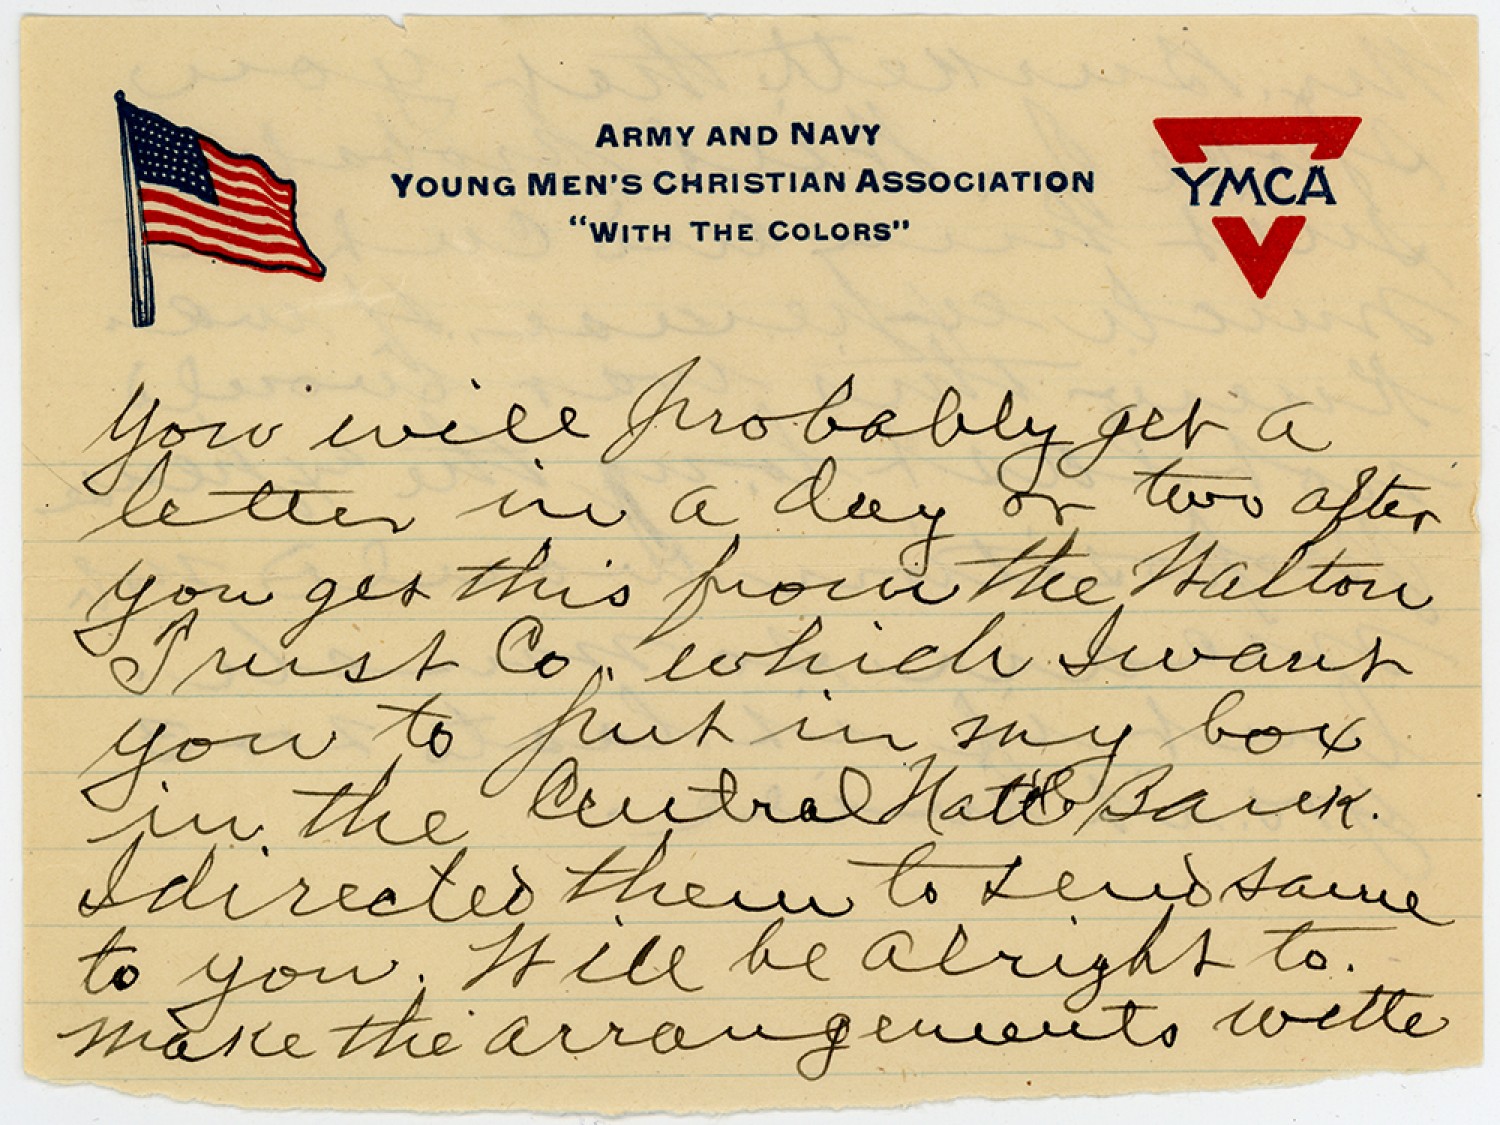 ARMY AND NAVY
YOUNG MEN'S CHRISTIAN ASSOCIATION
"WITH THE COLORS"
YMCA
You will probably get a
letter in a day or two after
you get this from the Walton
Trust Co., which I want
you to put in my box
in the Central Nat'l Bank.
I directed them to send same
to you. Will be alright to.
make the arrangements witte